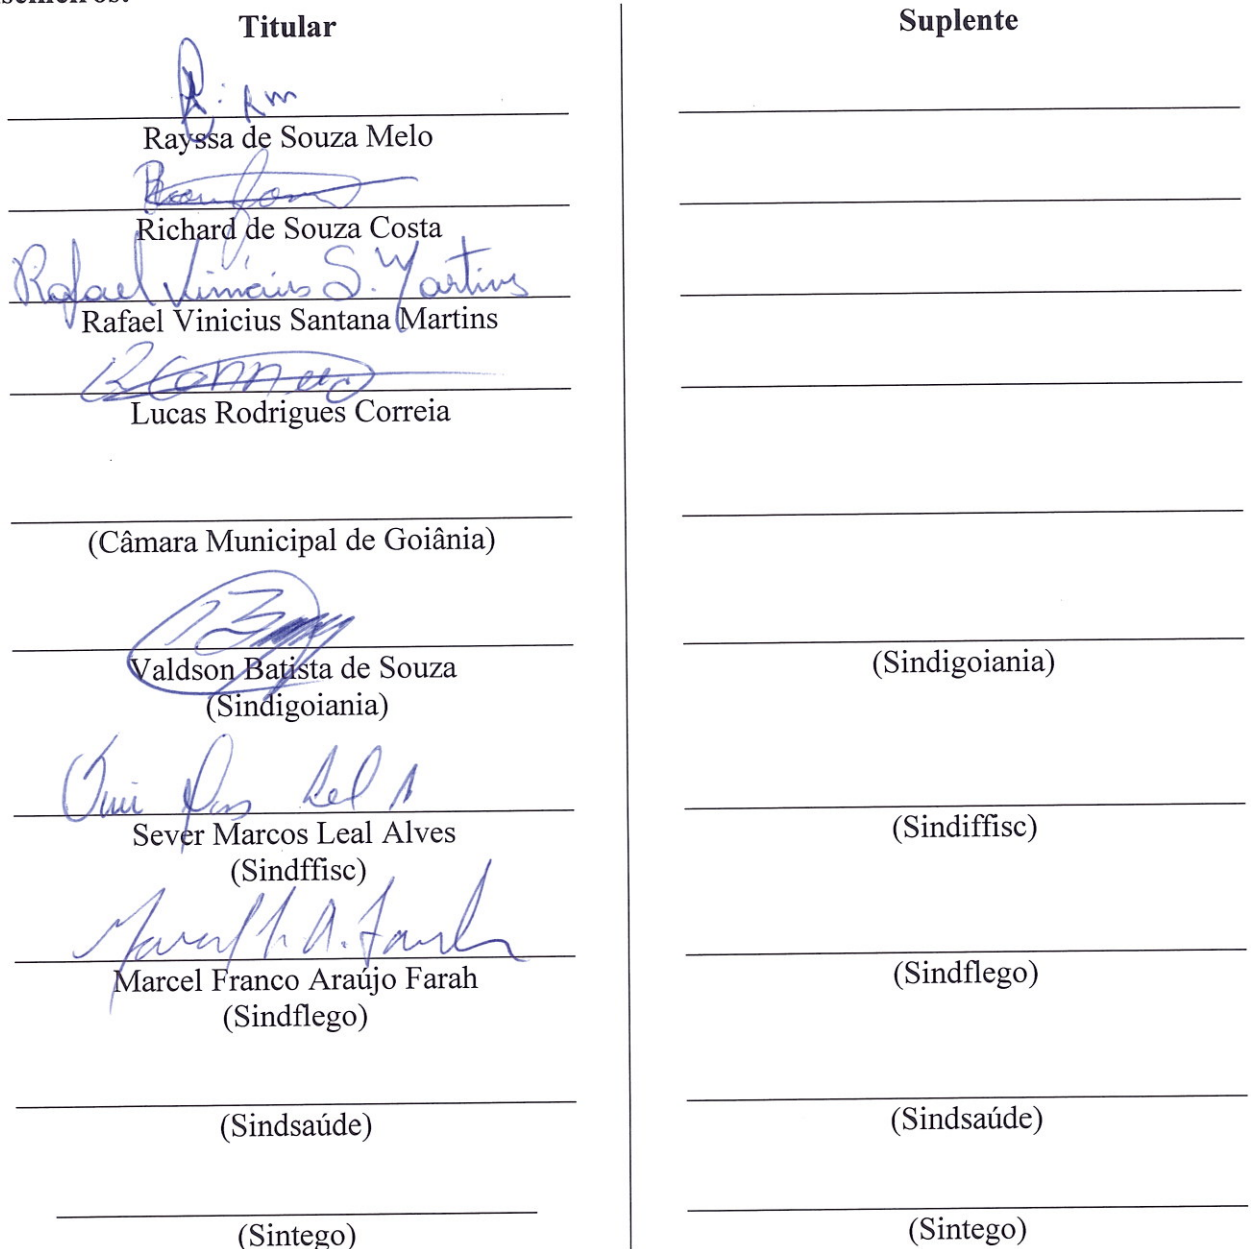 Titular
Rayssa de Souza Melo
Richard de Souza Costa
Rafael Vinicius S. Martins
Rafael Vinicius Santana Martins
Lucas Rodrigues Correia
(Câmara Municipal de Goiânia)
Valdson Batista de Souza
(Sindigoiania)
Sever Marcos Leal Alves
(Sindffisc)
Marcel Franco Araújo Farah
(Sindflego)
(Sindsaúde)
(Sintego)
Suplente
(Sindigoiania)
(Sindiffisc)
(Sindflego)
(Sindsaúde)
(Sintego)